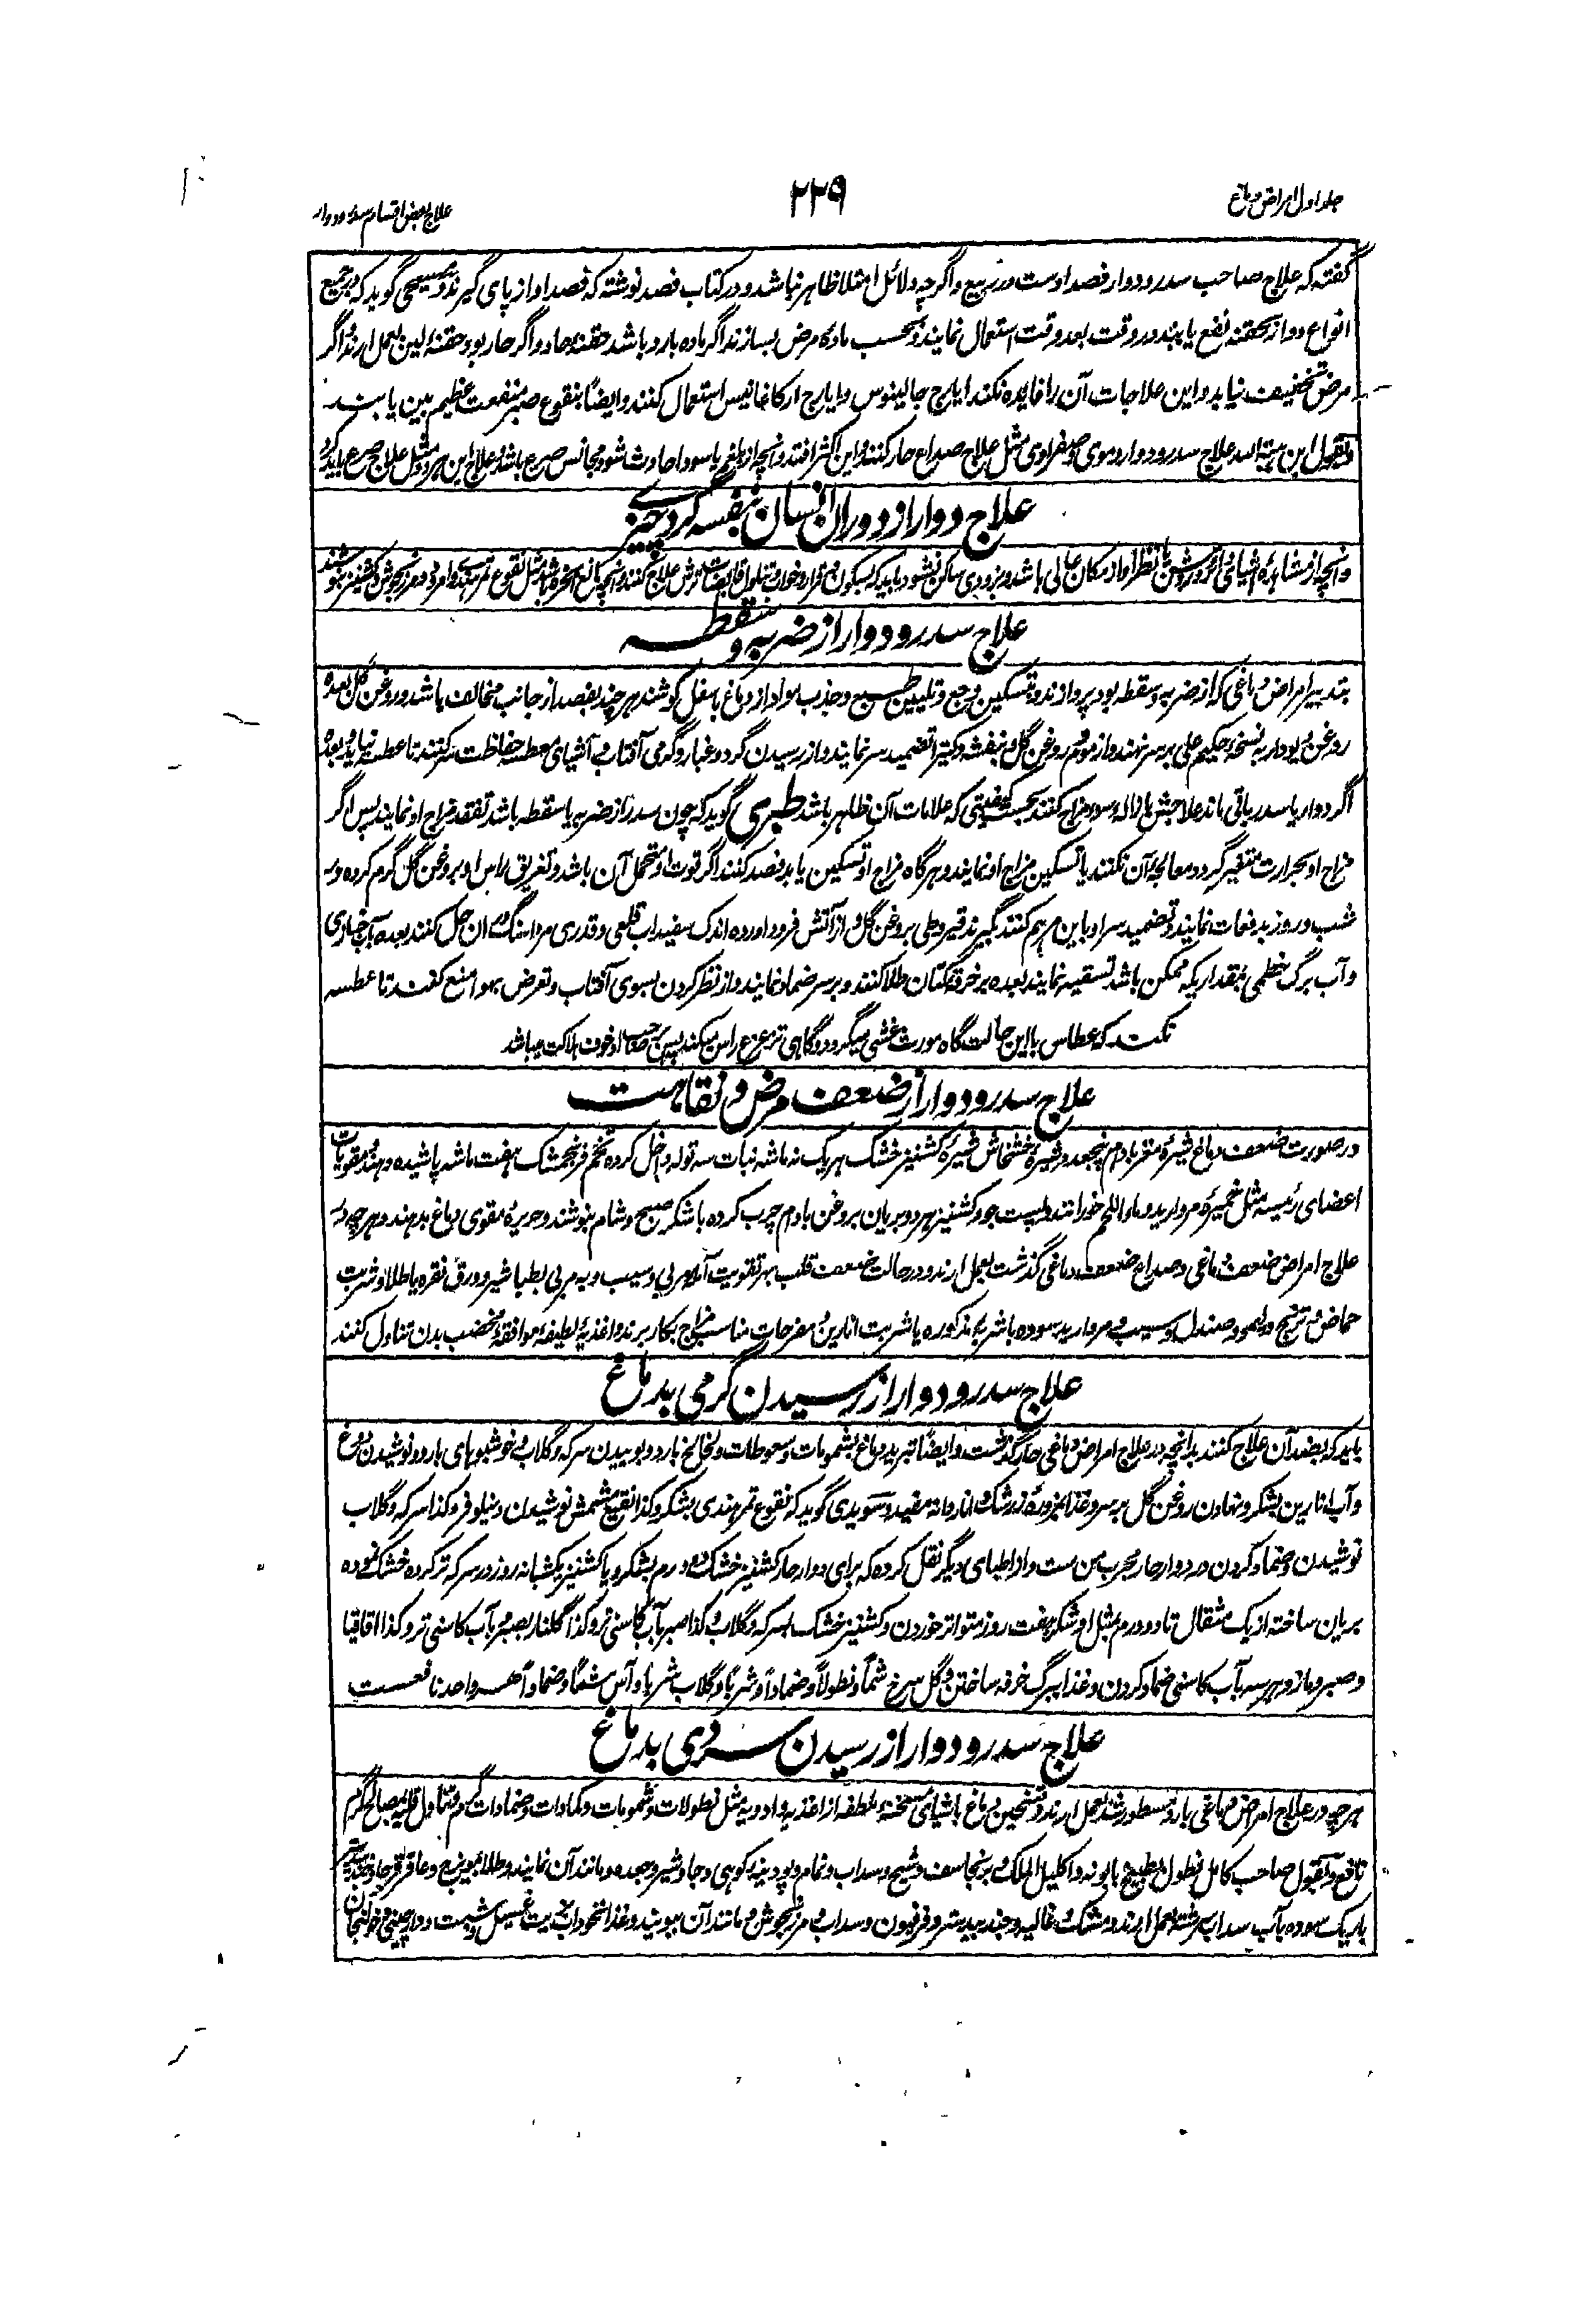 جلد اول امراض دماغ
۲۲۹
علاج بعض اقسام سدر و دوار
گفته که علاج صاحب سدر و دوار فصد اوست در ربیع و اگرچه دلائل امتلا ظاهر نباشد و در کتاب فصد نوشته که فصد او از پای گیرند و مسیحی گوید که در جمیع
انواع دوار بحقنه نفع یابند در وقت بعد وقت استعمال نمایند و بحسب ماده مرض بسازند اگر ماده بارد باشد حقنه حاد و اگر حار بود حقنه لین بعمل آرند و اگر
مرض تخفیف نیابد و این علاجات آن را فایده نکند ایارج جالینوس و ایارج ارکاغانیس استعمال کنند و ایضاً بنقوع صبر منفعت عظیم بین یابند
و بقول ابن هبة الله علاج سدر و دوار دموی و صفراوی مثل علاج صداع حار کنند و این اکثر افتد و آنچه از بلغم یا سودا حادث شود و مجانس صرع باشد علاج این هر دو مثل علاج صرع باید کرد
علاج دوار از دوران انسان بنفسه گرد چیزی
و آنچه از مشاهده اشیای دائر و روشن یا نظر او از مکان عالی باشد و بزودی ساکن نشود باید که بسکون و قرار و خواب و تناول قابضات ترش علاج کنند و آنچه مانع بخره باشد مثل نقوع تمر هندی و امرود و مرزنجوش و کشنیز بنوشند
علاج سدر و دوار از ضربه و سقطه
بتدبیر امراض دماغی که از ضربه و سقطه بود پردازند و تسکین وجع و تلیین طبیع و جذب مواد از دماغ باسفل کوشند هر چند بفصد از جانب مخالف باشد و روغن گل بعده
روغن بیودار به نسخه حکیم علی بر سر نهند و از موم و روغن گل و بنفشه و کتیرا تضمید سر نمایند و از رسیدن گرد و غبار و گرمی آفتاب و اشیای معطسه حفاظت سر کنند تا عطسه نیاید بعده
اگر دوار یا سدر باقی ماند علاجش بازاله سوء مزاج کنند بحسب کیفیتی که علامات آن ظاهر باشد طبری گوید که چون سدر از ضربه یا سقطه باشد تفقد مزاج او نمایند پس اگر
مزاج او بحرارت متغیر گردد معالجه آن کنند یا تسکین مزاج او نمایند و هرگاه مزاج او تسکین یابد فصد کنند اگر قوت او متحمل آن باشد و تغریق راس او بروغن گل گرم کرده در
شب و روز بدفعات نمایند و تضمید سر او باین مرهم کنند بگیرند قیروطی بروغن گل و از آتش فرود آورده اندک سفیداب قلعی و قدری مرداسنگ در ان حل کنند بعده بآب خبازی
و آب برگ خطمی بمقداریکه ممکن باشد تسقیه نمایند بعده بر خرقه کتان طلا کنند و بر سر ضماد نمایند و از نظر کردن بسوی آفتاب و تعرض بهوا منع کنند تا عطسه
نکند که عطاس با این حالت گاه مورث غشی میگردد و گاهی تزعزع راس میکند پس بر صاحب او خوف هلاکت میباشد
علاج سدر و دوار از ضعف مرض و نقاهت
در صورت ضعف دماغ شیره مغز بادام پنجعدد و شیره خشخاش شیره کشنیز خشک هر یک نه ماشه نبات سه توله داخل کرده تخم فرنجمشک هفت ماشه پاشیده دهند و مقویات
اعضای رئیسه مثل خمیره مروارید و ماء اللحم خورانند و سپست جو و کشنیز هر دو بریان بروغن بادام چرب کرده با شکر صبح و شام بنوشند و حریره مقوی دماغ بدهند و هرچه در
علاج امراض ضعف دماغی و صداع ضعف دماغی گذشت بعمل آرند و در حالت ضعف قلب بهر تقویت آمله مربی و سیب و به مربی بطباشیر و ورق نقره یا طلا و شربت
حماض و ترنج و لیمو و صندل و سیب و مروارید سوده باشربه مذکوره یا شربت انارین و مفرحات مناسب مزاج بکار برند و اغذیه لطیفه موافقه مخصب بدن تناول کنند
علاج سدر و دوار از رسیدن گرمی بدماغ
باید که بضد آن علاج کنند بدانچه در علاج امراض دماغی حار گذشت و ایضاً تبرید دماغ بشمومات و سعوطات و لخالخ بارد و بوییدن سرکه و گلاب و خوشبوهای بارد و نوشیدن دوغ
و آب انارین بشکر و نهادن روغن گل بر سر و غذا مزوره زرشک و اناردانه مفید و سویدی گوید که نقوع تمر هندی بشکر و کذا نقیع مشمش نوشیدن و نیلوفر و کذا سرکه و گلاب
نوشیدن و ضماد کردن در دوار حار مجرب من ست و از اطبای دیگر نقل کرده که برای دوار حار کشنیز خشک دو درم بشکر و یا کشنیز یکشبانه روز در سرکه تر کرده خشک نموده
بریان ساخته از یک مثقال تا دو درم بمثل او شکر هفت روز متواتر خوردن و کشنیز خشک بسرکه و گلاب و کذا صبر بآب کاسنی تر و کذا گلنار بصبر بآب کاسنی تر و کذا اقاقیا
و صبر و مازو هر سه بآب کاسنی ضماد کردن و غذا ببرگ خرفه ساختن و گل سرخ شماً و نطولاً و ضماداً و شرباً و گلاب شرباً و آس شماً و ضماداً هر واحد نافعست
علاج سدر و دوار از رسیدن سردی بدماغ
هرچه در علاج امراض دماغی بارد مسطور شد بعمل آرند و تسخین دماغ باشیای مسخنه و ملطفه از اغذیه و ادویه مثل نطولات و شمومات و کمادات و ضمادات گرم و تناول قلیه بمصالح گرم
نافع و بقول صاحب کامل نطول بطبیخ بابونه و اکلیل الملک و برنجاسف و شیح و سداب و نمام و پودینه کوهی و جاوشیر و جعده و مانند آن نمایند و طلا بمیویزج و عاقرقرحا
باریک سوده بآب سداب سرشته بعمل آرند و مشک و غالیه و جندبیدستر و فرفیون و سداب و مرزنجوش و مانند آن ببویند و غذا نخودآب بزیت غسیل و شبت و دارچینی و خولنجان